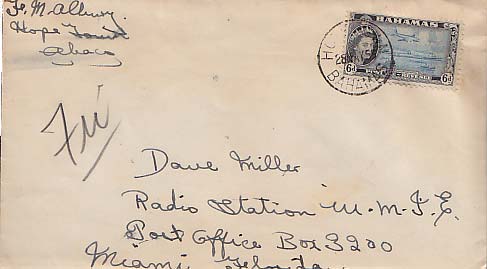 F. M. Albury
Hope Town
Abaco
BAHAMAS
6d
6d
REVENUE
BAHAMAS
Dave Miller
Radio Station W.M.I.E.
Post Office Box 3200
Miami, Florida